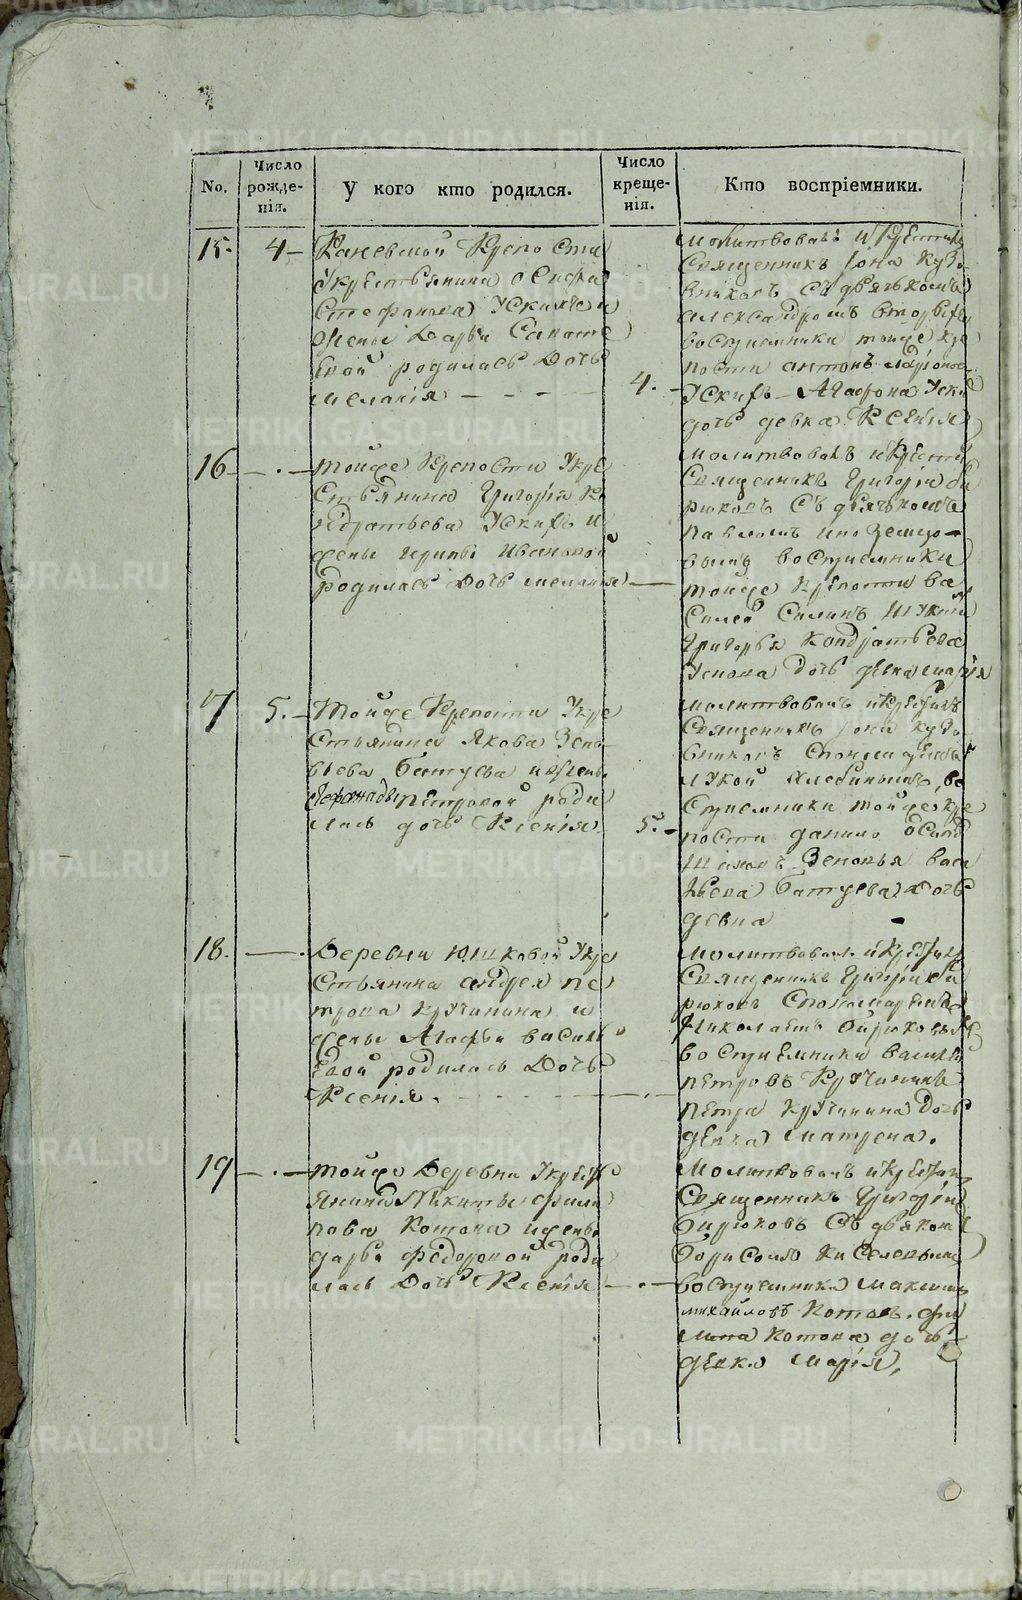 No.
Число рожде-нія.
У кого кто родился.
Число креще-нія.
Кто воспріемники.
15.
4
Каневской Крепости
укрестьянина
Стефанова Ускихъ и
жены Дарьи Савате
евой родилась Дочь
Меланія
4.
молитвовалъ и крестилъ
Священникъ Іона Кудо-
вниковъ съ дьячькомъ
александромъ
воспиемники тойже кре
пости антонъ
Ускихъ Агафона Уски
дочь девка Ксенія
16
тойже Крепости Укре
стьянина Григорія Ко
ндратьева Ускихъ и
жены ирины Ивановой
родилась Дочь меланія
молитвовалъ и крестил
Священникъ Григорій Би
рюковъ Съ дьячькомъ
павломъ
вымъ воспиемники
тойже Крепости Ва
силей Силинъ
Григорья Кондратьева
Ускова дочь девка марія
17
5.
Тойже Крепости Укре
стьянина Якова Зено-
вьева Батуева и жены
Петровой роди
лась дочь Ксенія
5.
молитвовалъ и крестилъ
Священникъ Іона Кудо-
вниковъ Спономаремъ
лукой Хлебинымъ, во
спиемники тойже кре
пости данило Осипо
Зеновья Васи
льева Батуева Дочь
девка
18.
Деревни Юшковой Укре
стьянина андрея пе
трова Кручинина и
жены Агафьи василь
евой родилась Дочь
Ксенія.
молитвовалъ и крестилъ
Священникъ Григорій Би
рюковъ Спономаремъ
Николаемъ Бирюковы
воспиемники василей
петровъ Кручининъ
петра Кручинина Дочь
девка матрена.
19
тойже Деревни Укресть
янина Никиты фили
пова Котова и жены
дарьи Федоровой роди
лась Дочь Ксенія
молитвовалъ и крестилъ
Священникъ Григорій
Бирюковъ Съ дьякомъ
Борисомъ Киселевымъ
воспиемники максимъ
михайловъ Котовъ. фи
липа Котова дочь
девка марія,
METRIKI.GASO-URAL.RU